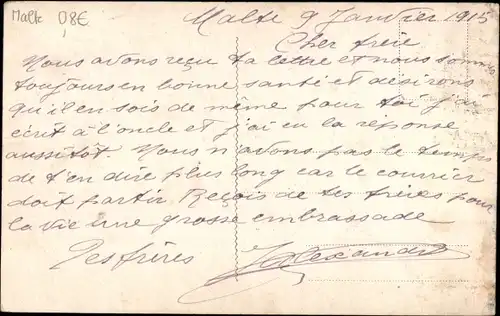 Malte 0,8€
Malte 9 Janvier 1915
Cher frère
Nous avons reçu ta lettre et nous sommes
toujours en bonne santé et désirons
qu'il en sois de même pour toi j'ai
écrit à l'oncle et j'ai eu la réponse
aussitôt. Nous n'avons pas le temps
de t'en dire plus long car le courrier
doit partir. Reçois de tes frères pour
la vie une grosse embrassade
Tes frères
Alexandre